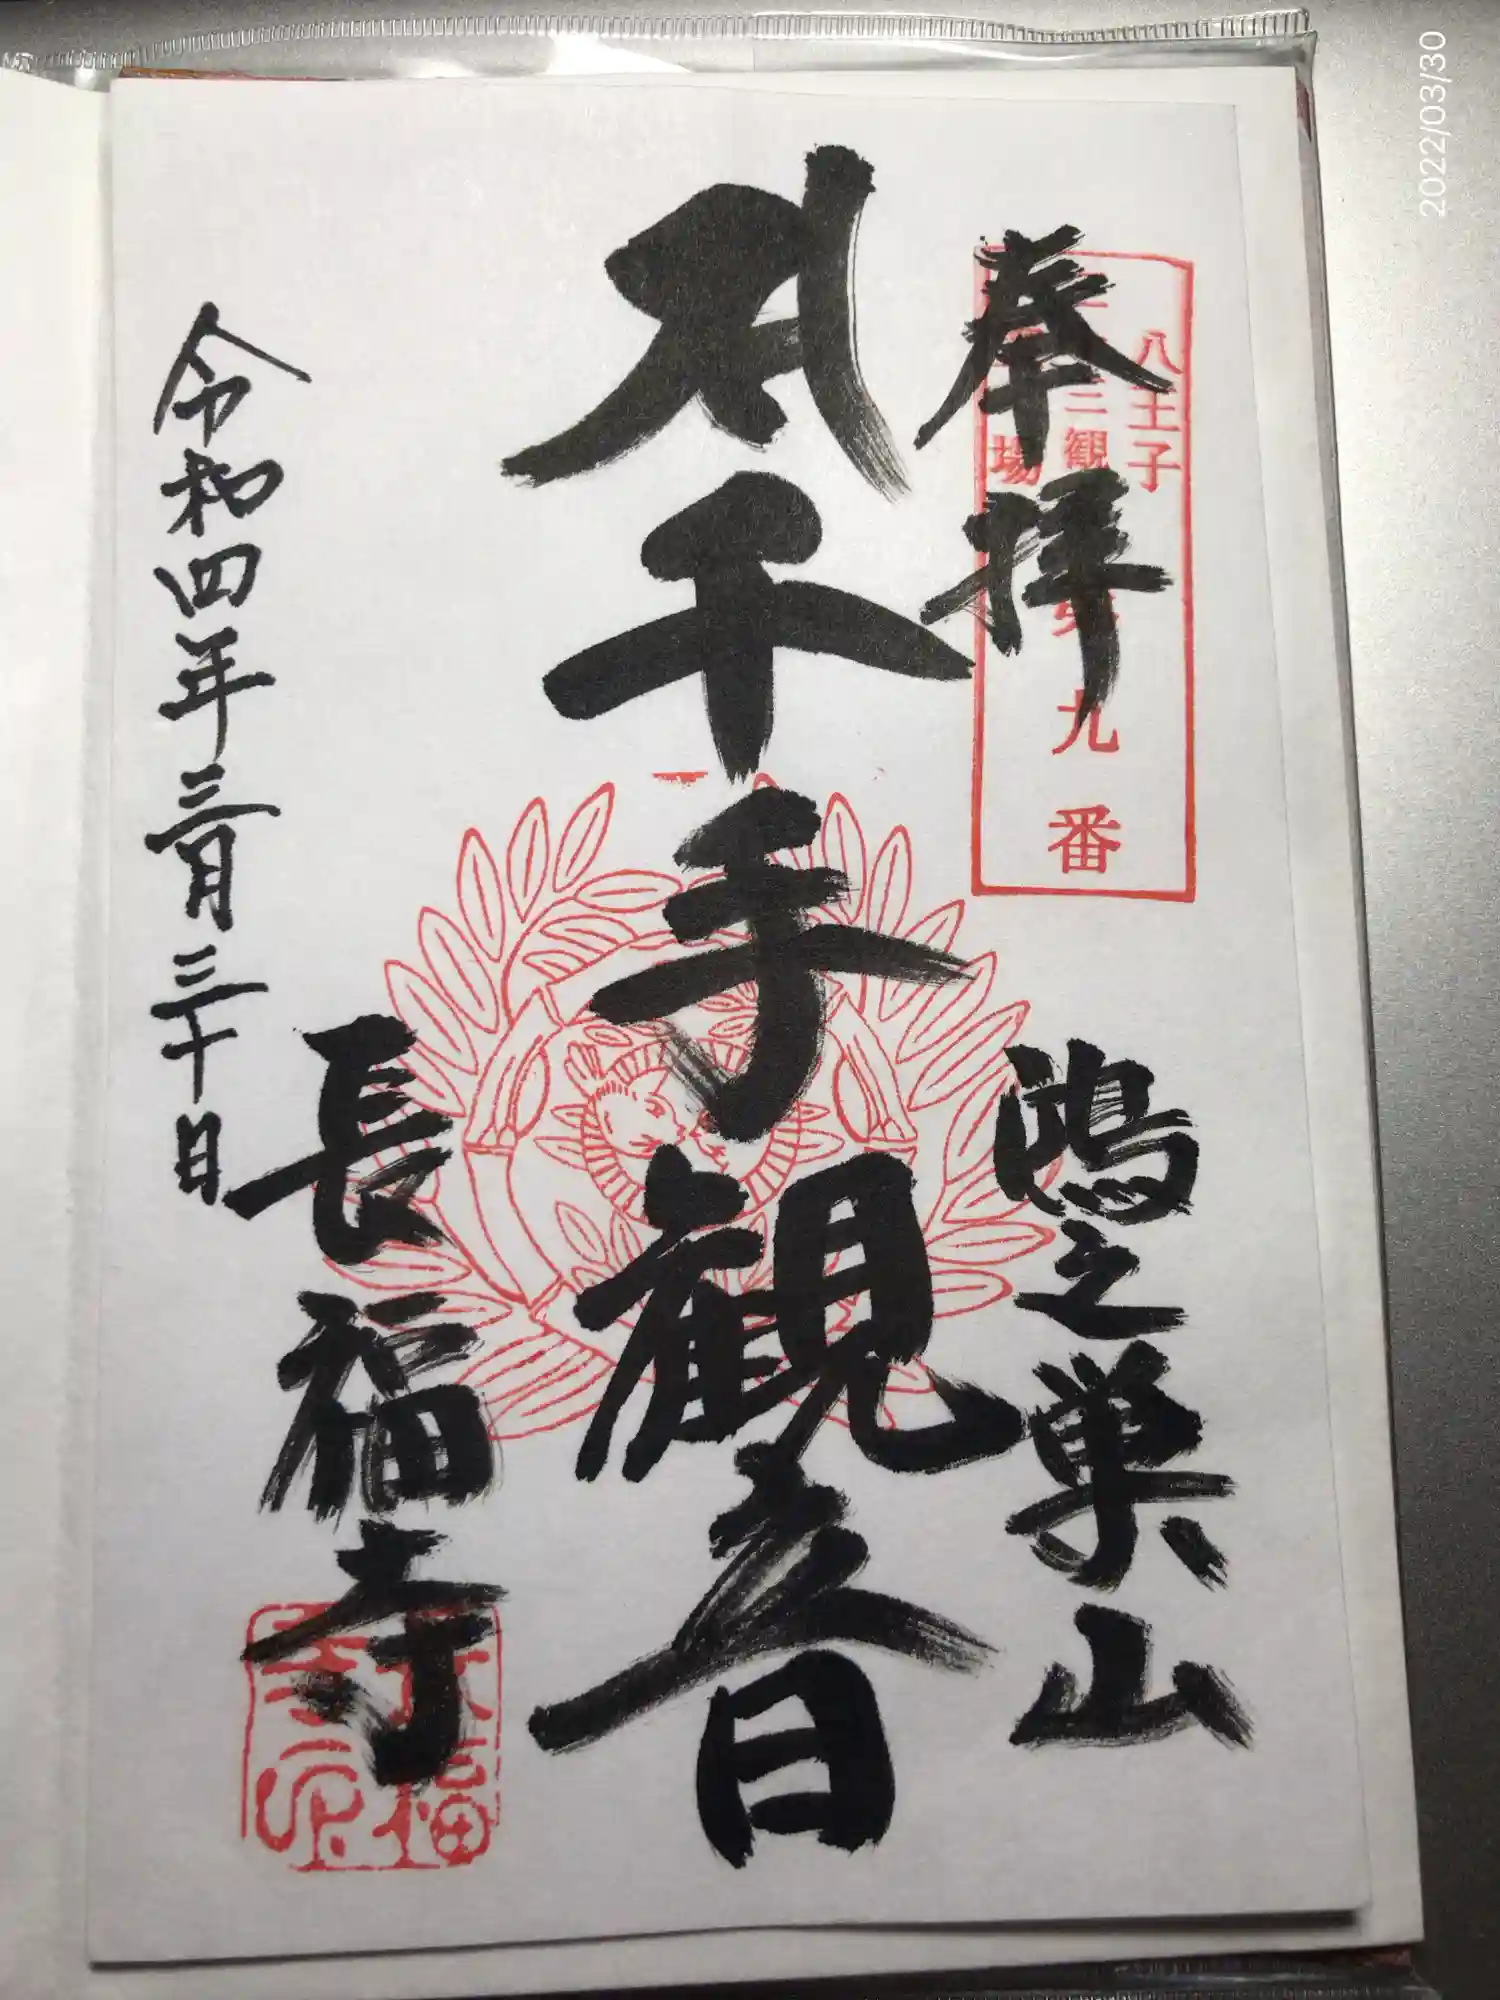 奉拝
八王子
三十三観
場
九番
鴻之巣山
千手観音
長福寺
令和四年三月三十日
2022/03/30